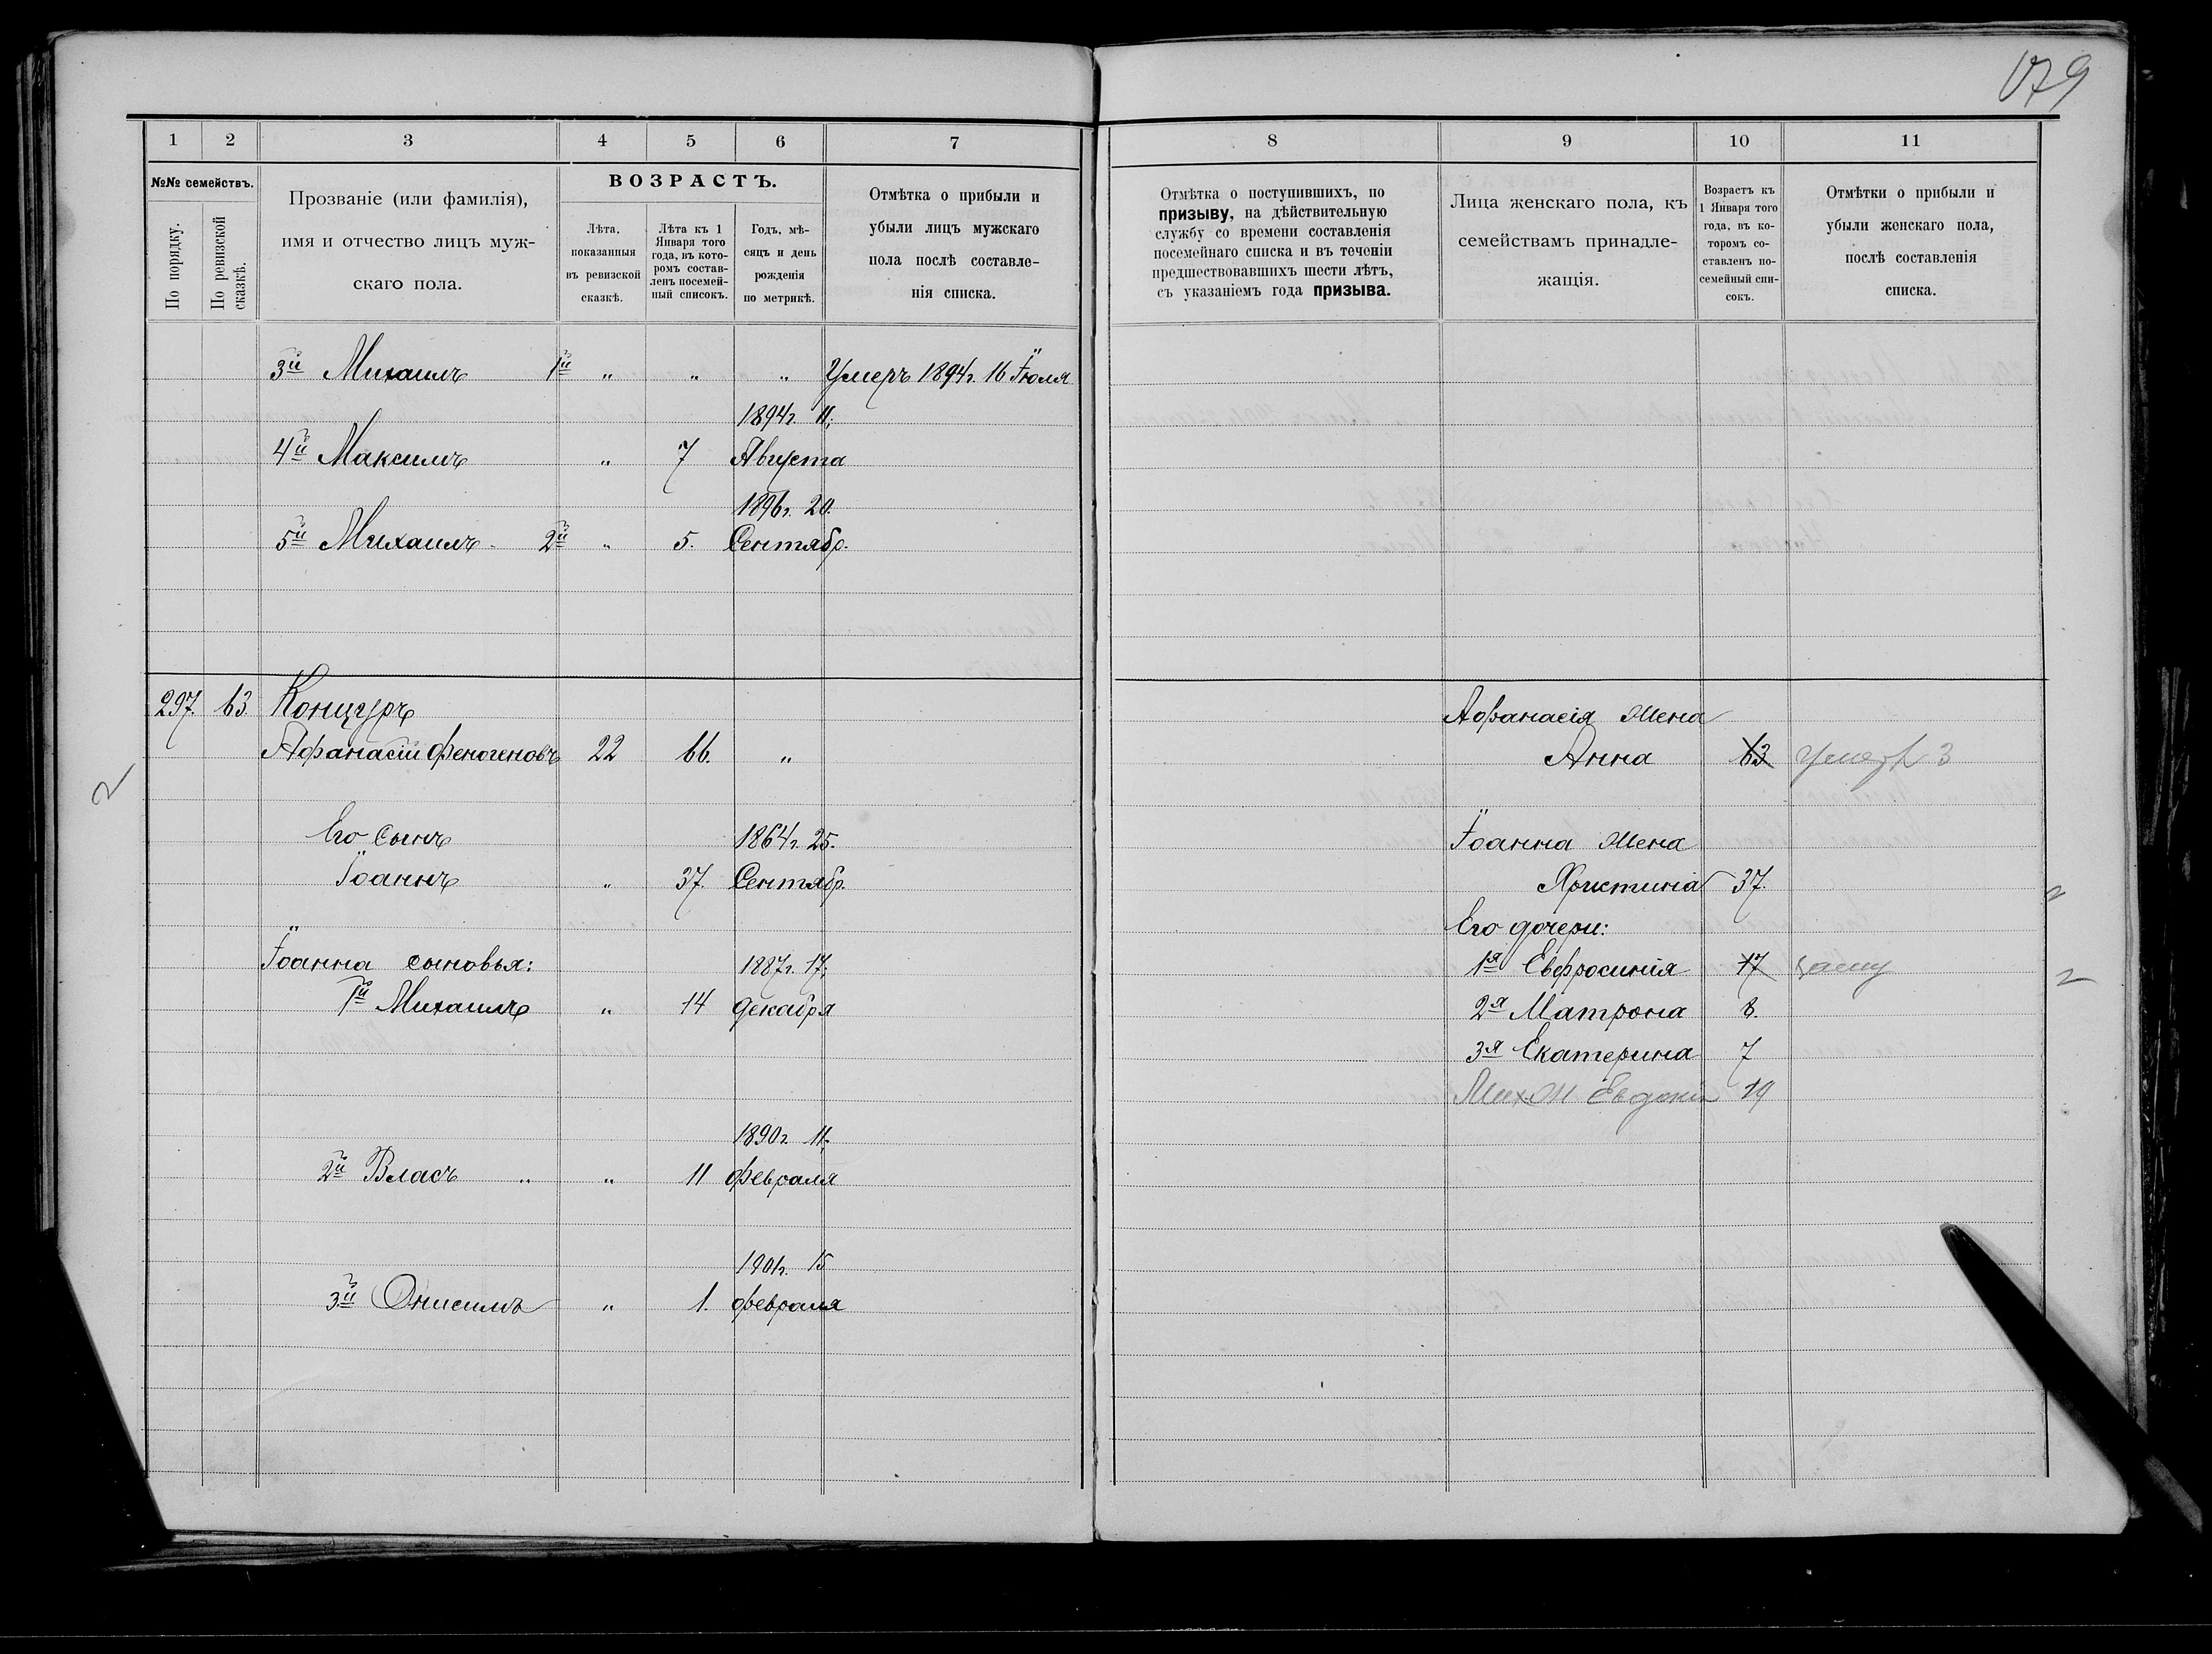 179
1 2 3 4 5 6 7
№№ семействъ.
По порядку.
По ревизской сказкѣ.
Прозваніе (или фамилія),
имя и отчество лицъ муж-
скаго пола.
ВОЗРАСТЪ.
Лѣта,
показанныя
въ ревизской
сказкѣ.
Лѣта къ 1
Января того
года, въ кото-
ромъ состав-
ленъ посемей-
ный списокъ.
Годъ, мѣ-
сяцъ и день
рожденія
по метрикѣ.
Отмѣтка о прибыли и
убыли лицъ мужскаго
пола послѣ составле-
нія списка.
3й Михаилъ 1й " " " Умеръ 1894г. 16 Іюля
1894г. 11;
4й Максимъ " 7 Августа
1896г. 20.
5й Михаилъ - 2й " 5. Сентябр.
297. 63 Концуръ
Афанасій Феногеновъ 22 66. "
2
Его сынъ 1864г. 25.
Іоаннъ " 37. Сентябр.
Іоанна сыновья: 1887г. 17;
1й Михаилъ " 14 Декабря
1890г 11;
2й Власъ " " 11 Февраля
1901г. 15
3й Онисимъ " 1. Февраля
8 9 10 11
Отмѣтка о поступившихъ, по
призыву, на дѣйствительную
службу со времени составленія
посемейнаго списка и въ теченіи
предшествовавшихъ шести лѣтъ,
съ указаніемъ года призыва.
Лица женскаго пола, къ
семействамъ принадле-
жащія.
Возрастъ къ
1 Января того
года, въ ко-
торомъ со-
ставленъ по-
семейный спи-
сокъ.
Отмѣтки о прибыли и
убыли женскаго пола,
послѣ составленія
списка.
Афанасія жена
Анна 63 умер 3
Іоанна жена
Христинія 37.
Его дочери:
1я Евфросинія 17 замуж
2я Матрона 8.
3я Екатерина 7
Мих. ж Евдокія 19
2